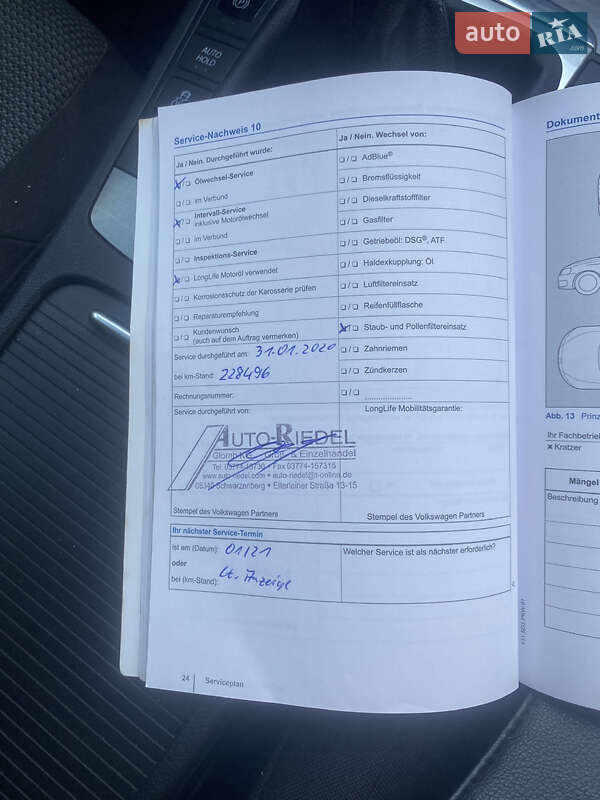 auto RIA.com
AUTO HOLD
Service-Nachweis 10
Ja / Nein. Durchgeführt wurde:
X/❏ Ölwechsel-Service
❏/❏ im Verbund
X/❏ Intervall-Service
inklusive Motorölwechsel
❏/❏ im Verbund
❏/❏ Inspektions-Service
X/❏ LongLife Motoröl verwendet
❏/❏ Korrosionsschutz der Karosserie prüfen
❏/❏ Reparaturempfehlung
❏/❏ Kundenwunsch
(auch auf dem Auftrag vermerken)
Service durchgeführt am: 31.01.2020
bei km-Stand: 228496
Rechnungsnummer:
Service durchgeführt von:
AUTO-RIEDEL
Groß- & Einzelhandel
Tel. 03774-15730 • Fax 03774-157315
www.auto-riedel.com • auto-riedel@t-online.de
08340 Schwarzenberg • Elterleiner Straße 13-15
Stempel des Volkswagen Partners
Ja / Nein. Wechsel von:
❏/❏ AdBlue®
❏/❏ Bremsflüssigkeit
❏/❏ Dieselkraftstofffilter
❏/❏ Gasfilter
❏/❏ Getriebeöl: DSG®, ATF
❏/❏ Haldexkupplung: Öl
❏/❏ Luftfiltereinsatz
❏/❏ Reifenfüllflasche
X/❏ Staub- und Pollenfiltereinsatz
❏/❏ Zahnriemen
❏/❏ Zündkerzen
❏/❏ ......................
LongLife Mobilitätsgarantie:
Stempel des Volkswagen Partners
Ihr nächster Service-Termin
ist am (Datum): 01/21
oder
bei (km-Stand): lt. Anzeige
Welcher Service ist als nächster erforderlich?
24 Serviceplan
Dokument
Abb. 13 Prinz
Ihr Fachbetrie
× Kratzer
Mängel
Beschreibung